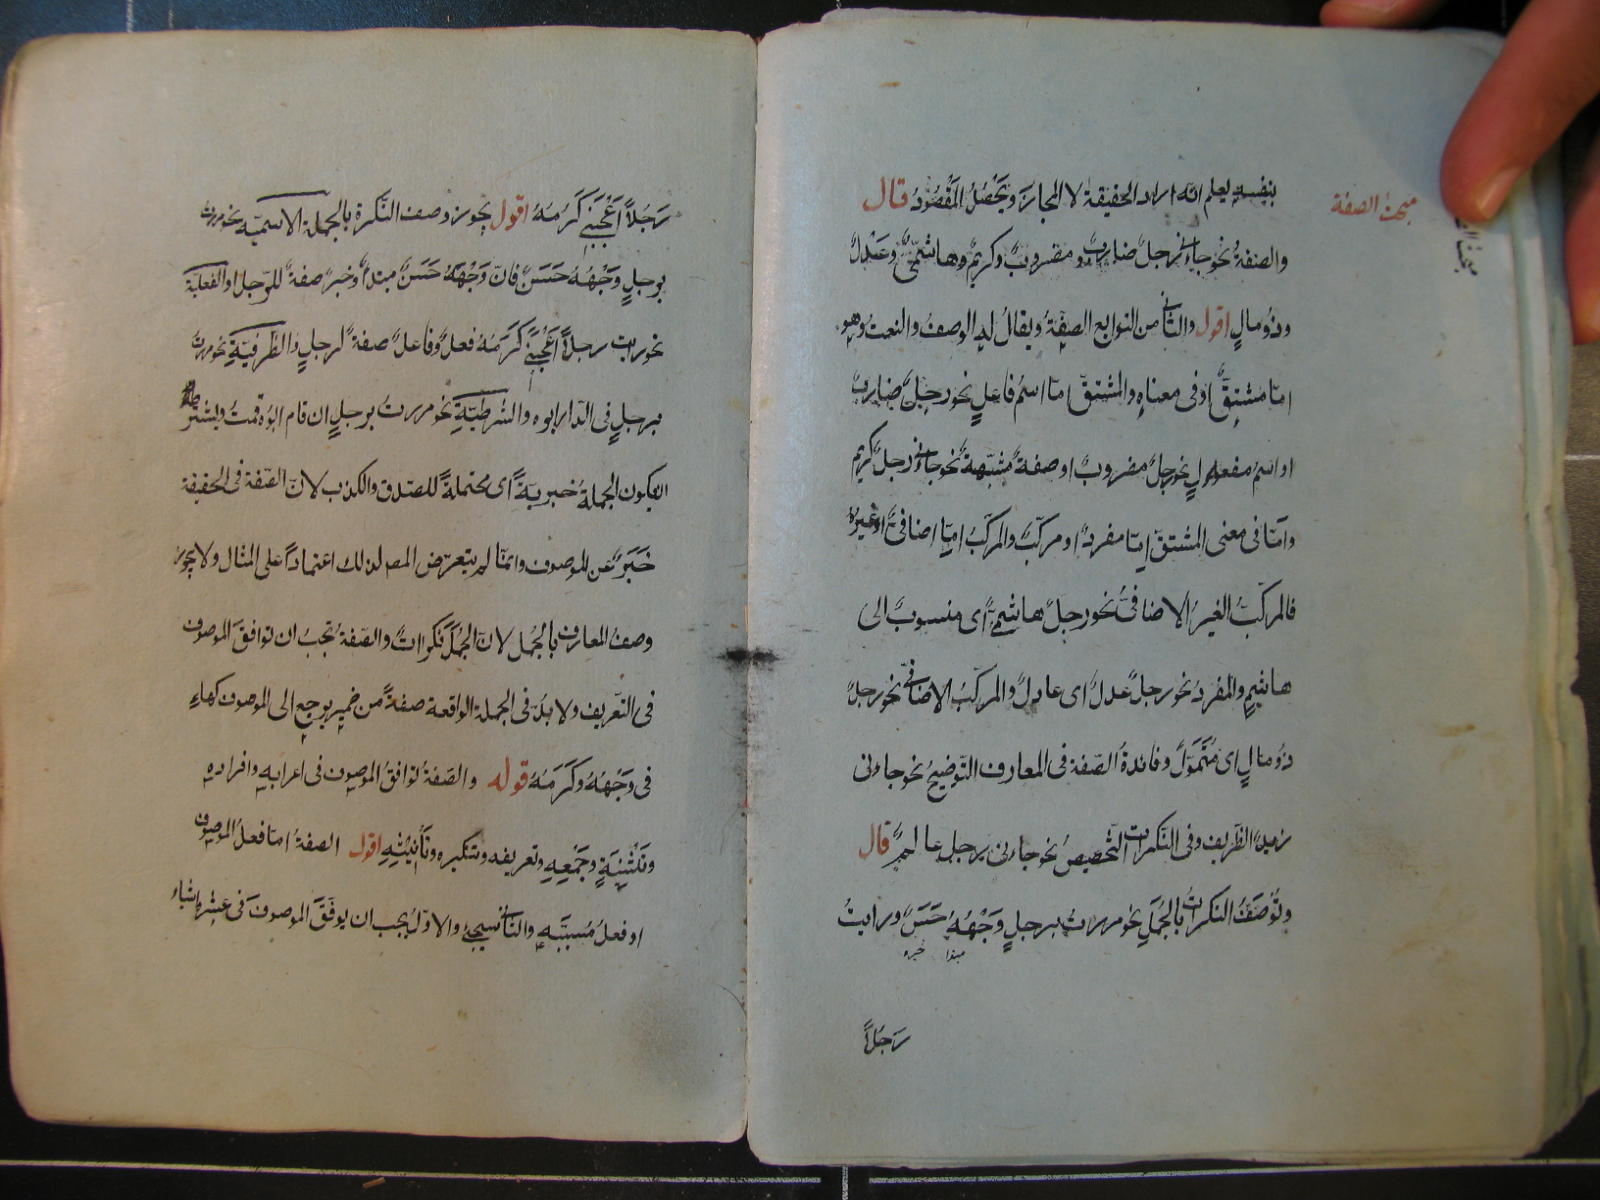 مبحث الصفة
بنفسه يعلم انّه اراد الحقيقة لا المجاز ويَحْصُلُ المَقْصُودُ قال
والصفةُ نحو جاءنى رجلٌ ضاربٌ ومضروبٌ وكريمٌ وهاشمىٌّ وعَدْلٌ
وذُو مالٍ اقول والثانى من التوابع الصفةُ ويقالُ لها الوصفُ والنعتُ وهو
امّا مشتقٌّ او فى معناه والمشتقّ امّا اسمُ فاعلٍ نحو رجلٌ ضاربٌ
او اسمُ مفعولٍ نحو رجلٌ مضروبٌ او صفةٌ مشبّهةٌ نحو جاءنى رجلٌ كريم
وامّا فى معنى المشتقّ امّا مفردٌ او مركّبٌ والمركّبُ امّا اضافىٌّ او غيرُه
فالمركّبُ الغيرُ الاضافىُّ نحو رجلٌ هاشمىٌّ اى منسوبٌ الى
هاشمٍ والمفردُ نحو رجلٌ عدلٌ اى عادلٌ والمركّبُ الاضافىّ نحو رجلٌ
ذُو مالٍ اى مُتَمَوِّلٌ وفائدةُ الصّفة فى المعارف التّوضيحُ نحو جاءنى
زيدٌ الظّريف وفى النّكرات التّخصيصُ نحو جاءنى رجلٌ عالمٌ قال
وتُوصَفُ النكراتُ بالجُمَلِ نحو مررتُ برجلٍ وَجْهُهُ حَسَنٌ ورايتُ
مبتدا خبره
رَجُلاً
رَجُلاً اَعْجَبَنِى كَرَمُهُ اقول يجوز وصف النّكرة بالجملة الاسميّة نحو مررت
برجلٍ وَجْهُهُ حَسَنٌ فانّ وَجْهُهُ حَسَنٌ مبتدأٌ وخبرٌ صفةٌ للرّجل او الفعليّة
نحو رايت رجلاً اَعْجَبَنِى كَرَمُهُ فعلٌ وفاعلٌ صفةٌ لرجلٍ والظّرفيّةِ نحو مررت
برجلٍ فى الدّار ابوه والشّرطيّةِ نحو مررتُ برجلٍ ان قام ابُوه قمتُ ويشترط
ان يكون الجملةُ خبريّةً اى محتملةً للصّدق والكذب لانّ الصّفة فى الحقيقة
خَبَرٌ عن الموصوف وانّما لم يتعرّض المصـ لذلك اعتماداً على المثال ولا يجوز
وصفُ المعارف بالجُمل لانّ الجُمَلَ نَكِراتٌ والصّفةُ يجب ان توافقَ الموصوف
فى التّعريف ولا بدّ فى الجملة الواقعة صفةً من ضميرٍ يرجع الى الموصوف كهاءِ
فى وَجْهُهُ وكَرَمُهُ قوله والصّفةُ توافقُ الموصوف فى اعرابِه وافرادِه
وتَثْنِيَةٍ وجَمْعِهِ وتعريفه وتنكيره وتَأْنِيْثِهِ اقول الصفةُ امّا فعلُ الموصوف
او فعلُ مُسبّبِه والثّانى سيجئُ والاوّلُ يجب ان يوفَقَ الموصوفَ فى عشرة اشياء